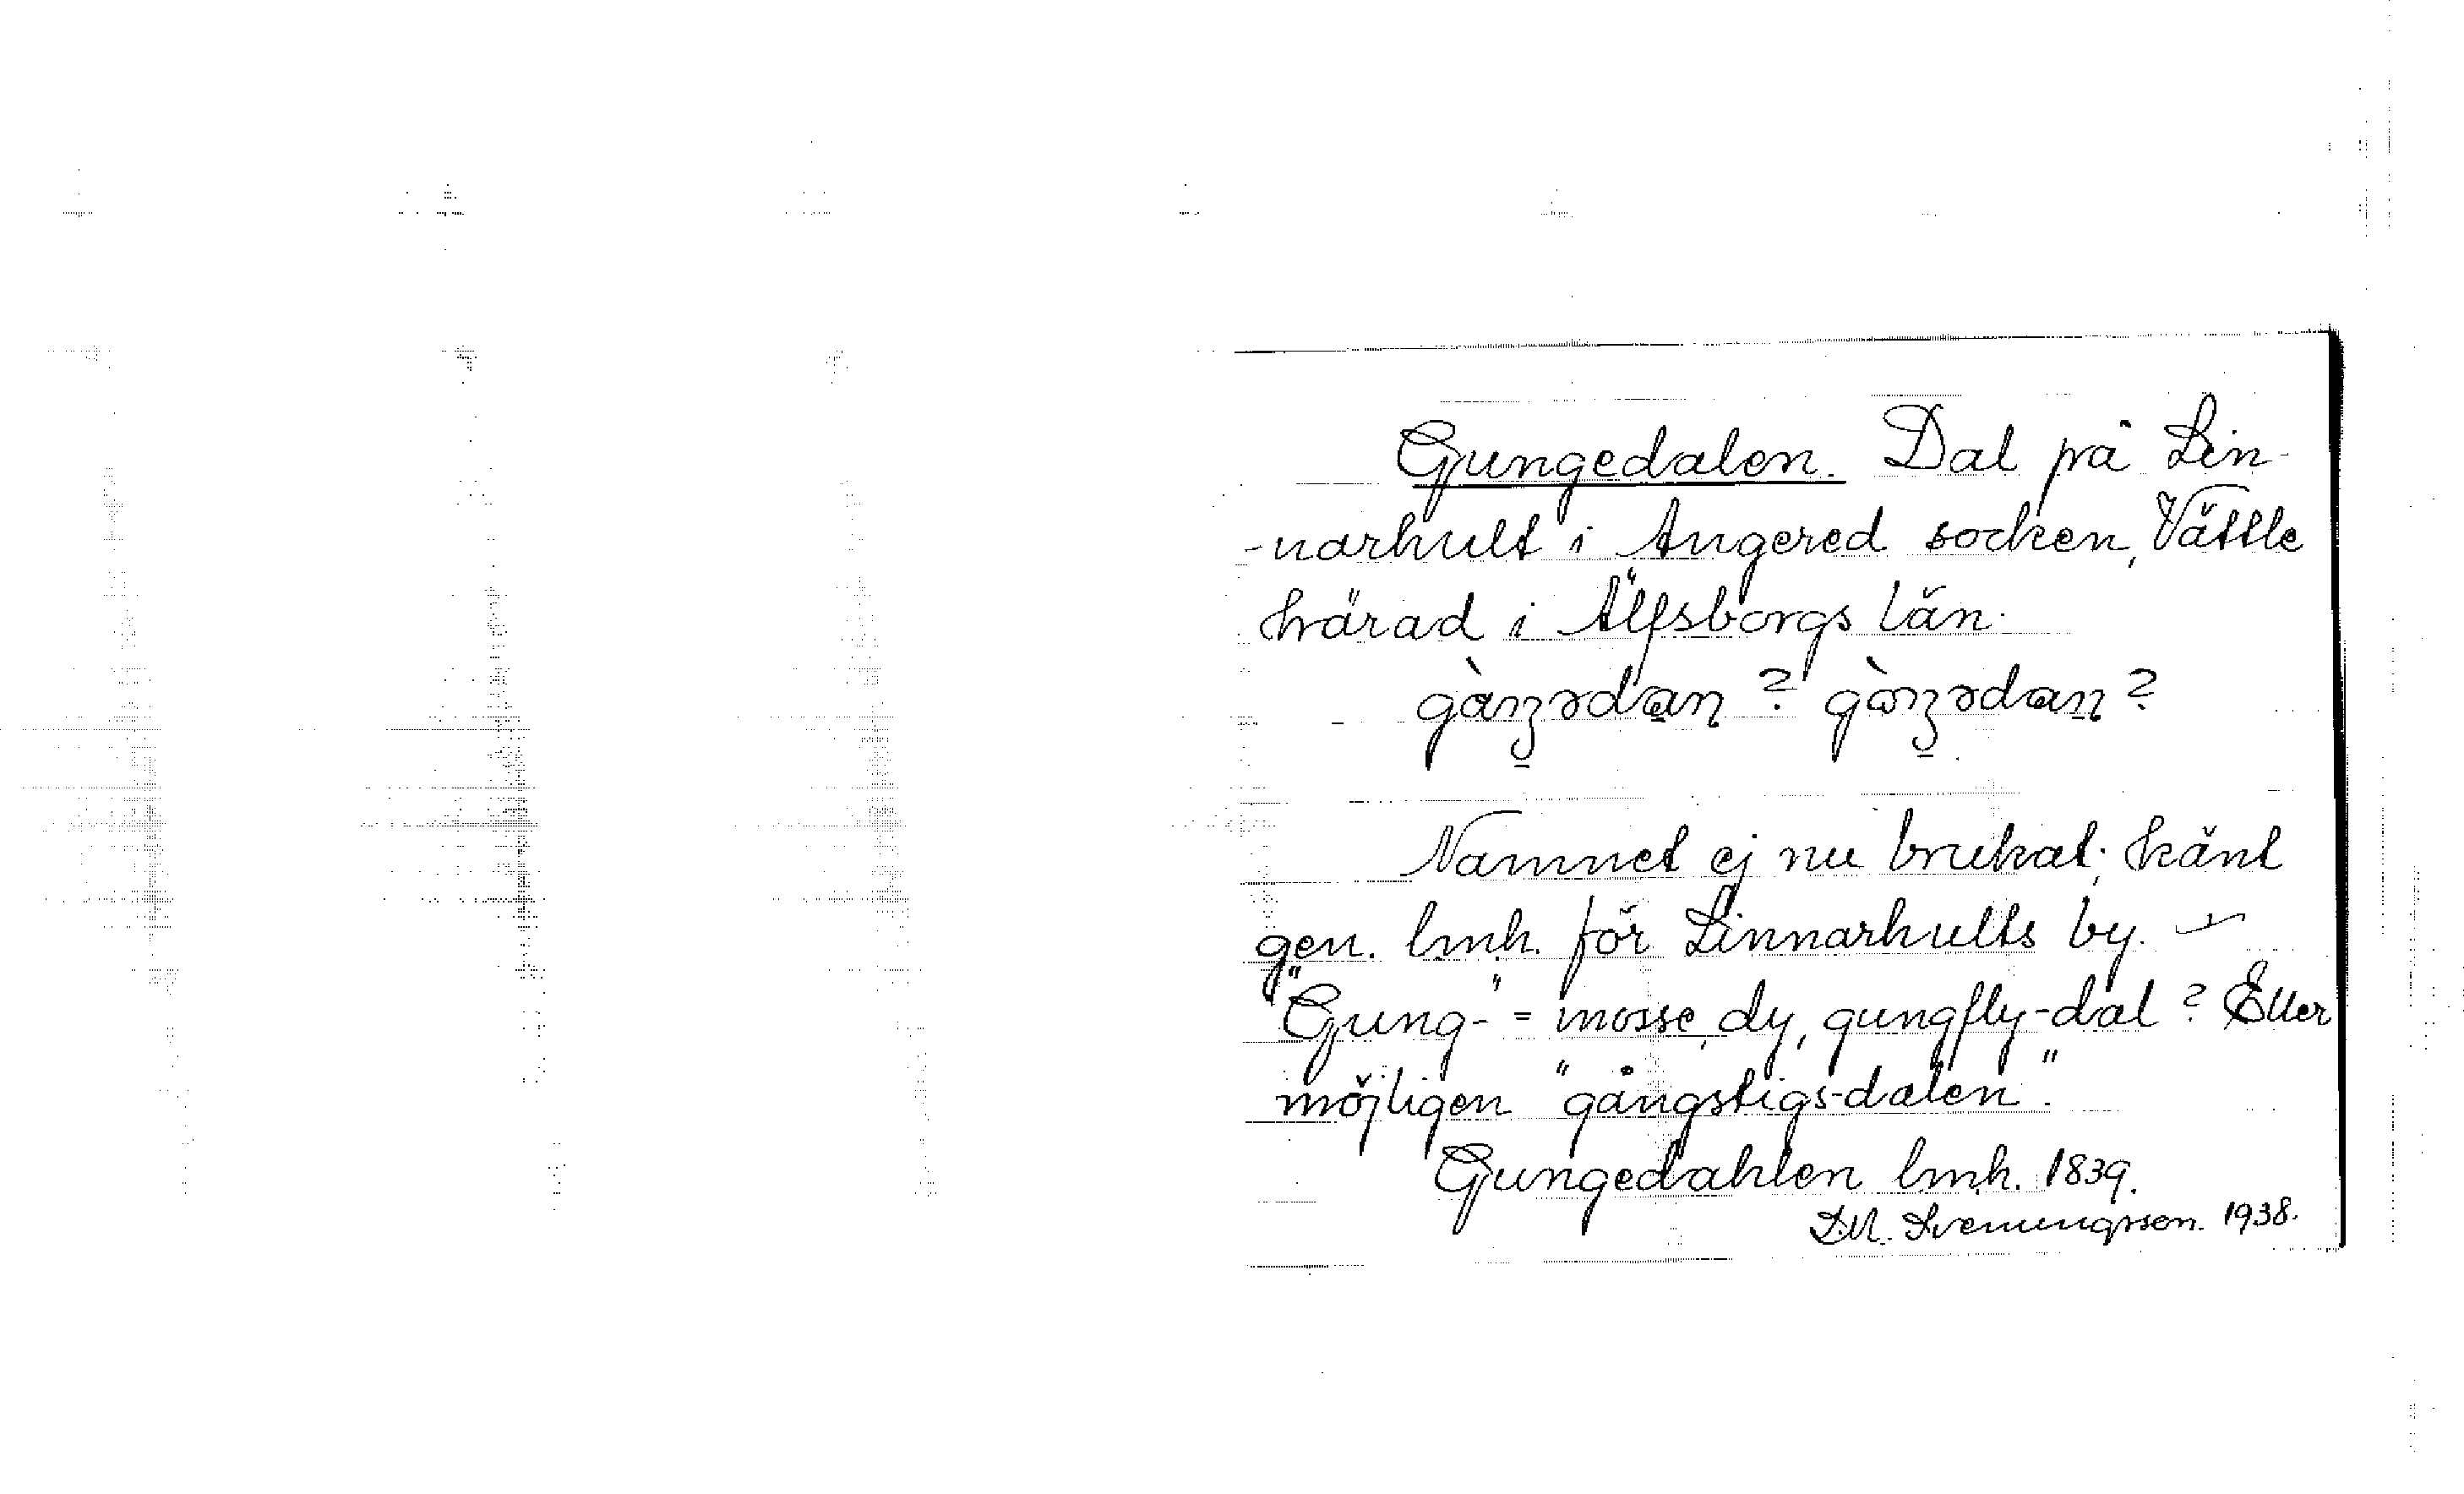 Gungedalen. Dal på Lin-
-narhult i Angered socken, Vättle
härad i Älfsborgs län.
Namnet ej nu brukat; känt
gen. lmh. för Linnarhults by. –
"Gung-" = mosse, dy, gungfly-dal? Eller
möjligen "gångstigs-dalen".
Gungedahlen lmh. 1839.
Svenungsson. 1938.